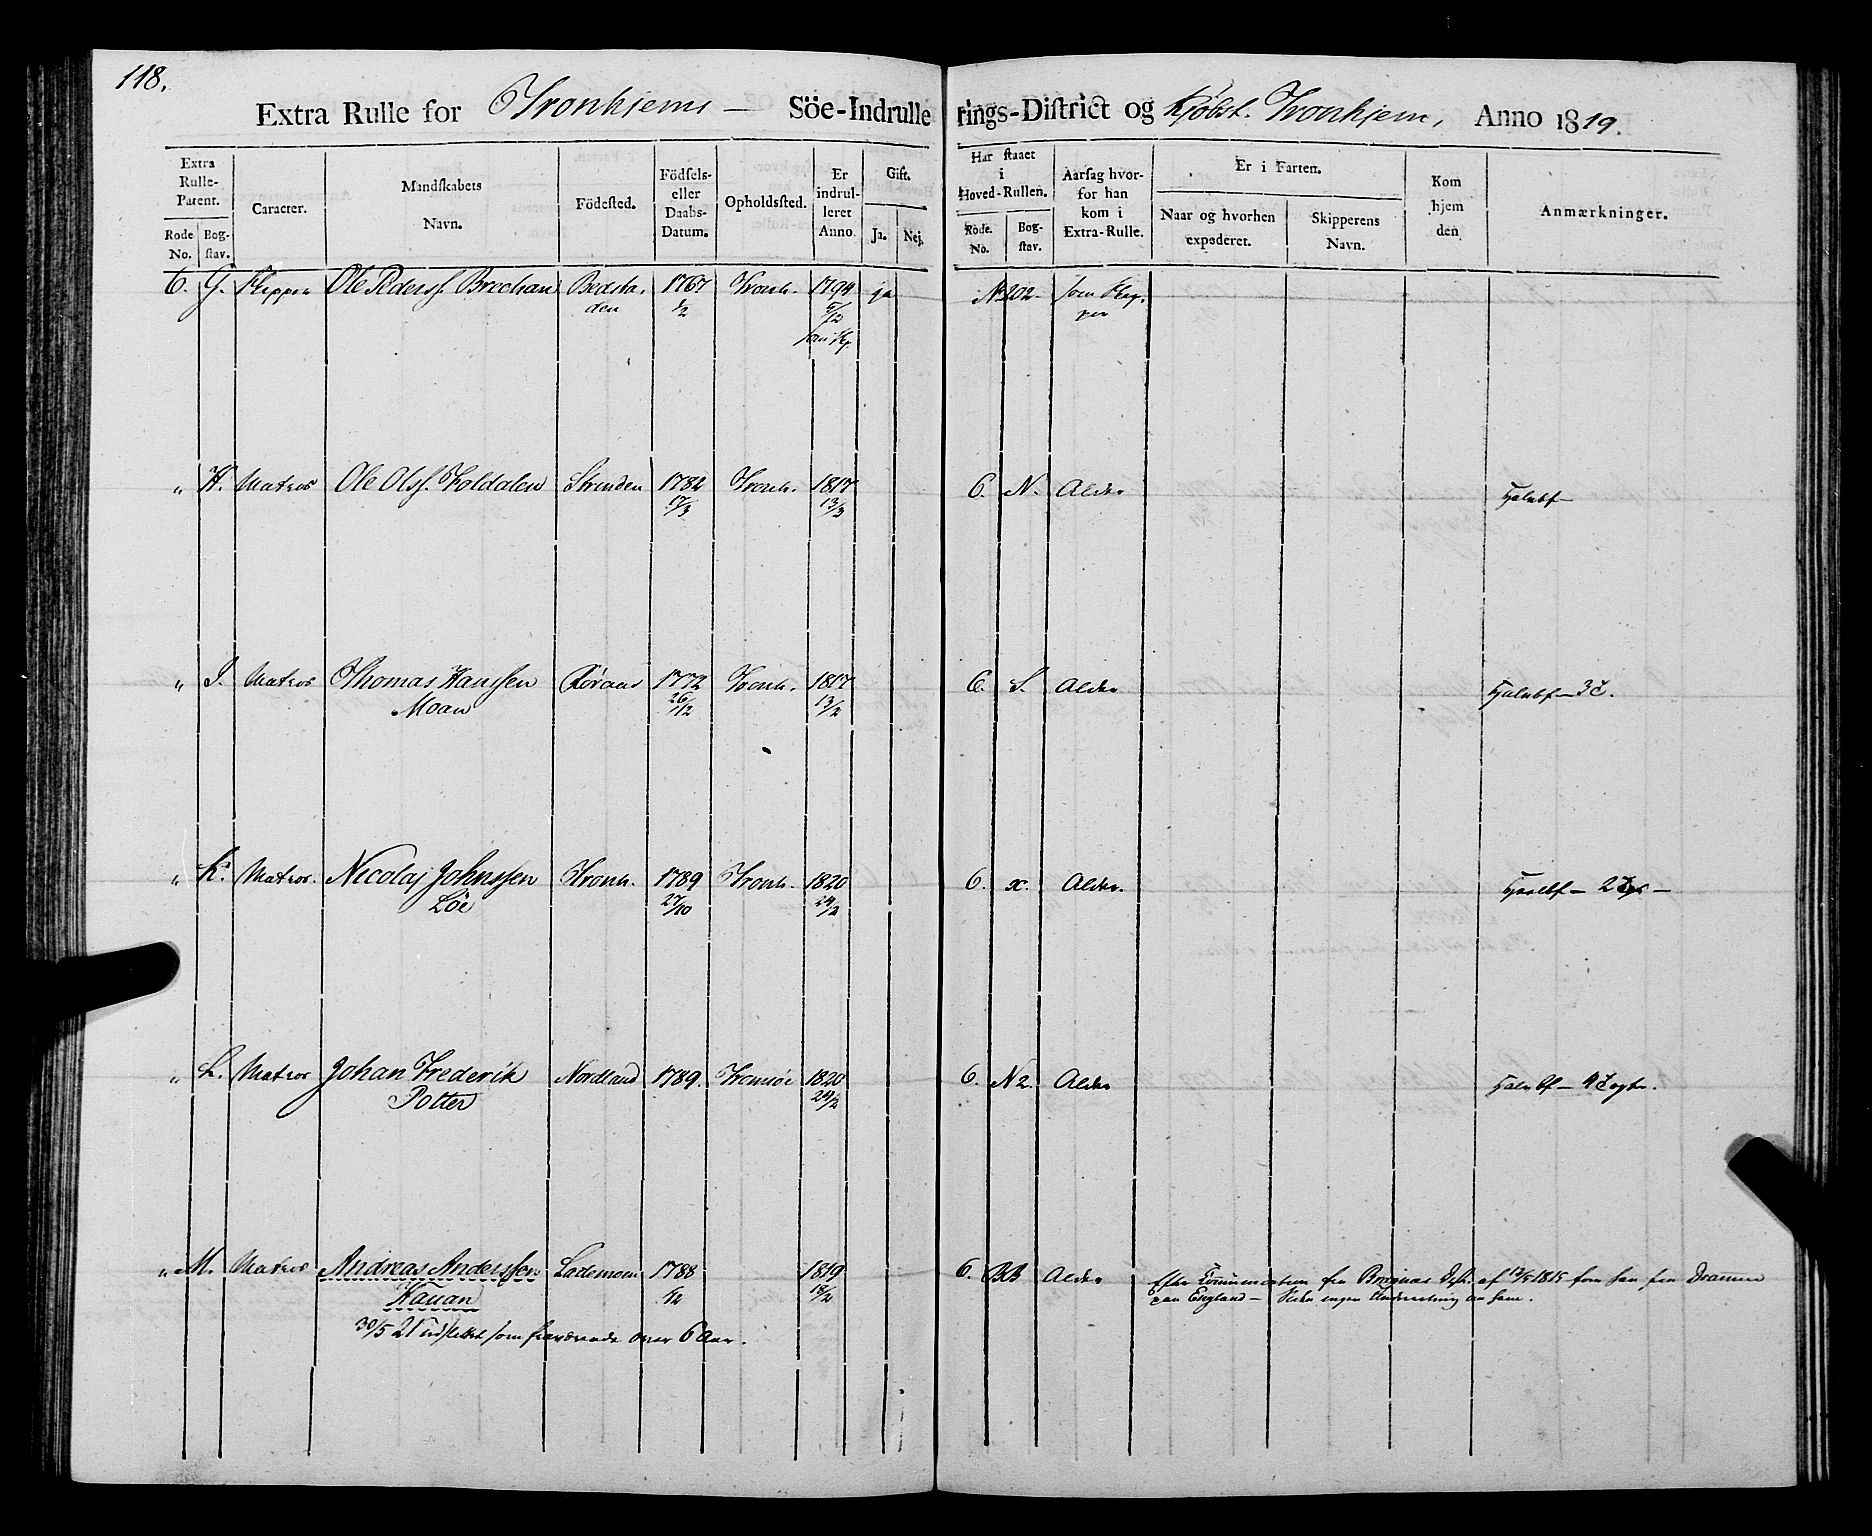 118.
Extra Rulle for Tronhjems — Söe-Indrullerings-District og Kjöbst. Tronhjem, Anno 1819.
Extra Rulle-Patent. Rode No. Bog-stav.
Caracter.
Mandskabets Navn.
Födested.
Födsels- eller Daabs-Datum.
Opholdsted.
Er indrulleret Anno
Gift. Ja. Nej.
Har staaet i Hoved-Rullen. Rode. No. Bog-stav.
Aarsag hvorfor han kom i Extra-Rulle.
Er i Farten. Naar og hvorhen expederet. Skipperens Navn.
Kom hjem den
Anmærkninger.
6. G. Skipper Ole Pederss. Brechan 1767 Tronh. 1794 ja No 202. som Skip-
den 1/2 per
„ H. Matros Ole Olss. Toldalen Strinden 1782 Tronh. 1817 6. N. Alder
17/3 13/3
„ I. Matros Thomas Hanssen 1772 Tronh. 1817 6. S. Alder
Moan 26/12 13/2
„ K. Matros. Nicolaj Johnssen Tronh. 1789 Tronh. 1820 6. x. Alder.
Löe 27/10 24/2
„ L. Matros Johan Frederik Nordland 1789. Tromsöe 1820 6. N2. Alder
Potter 24/2
„ M. Matros Andreas Anderssen Lademoen 1788 1819 6. BB Alder Efter af 12/5 1815 kom han fra Drammen
Kauan 1/12 18/2 paa England — siden ingen Underretning om ham.
30/5 21 udslettet som fraværende over 6 Aar.